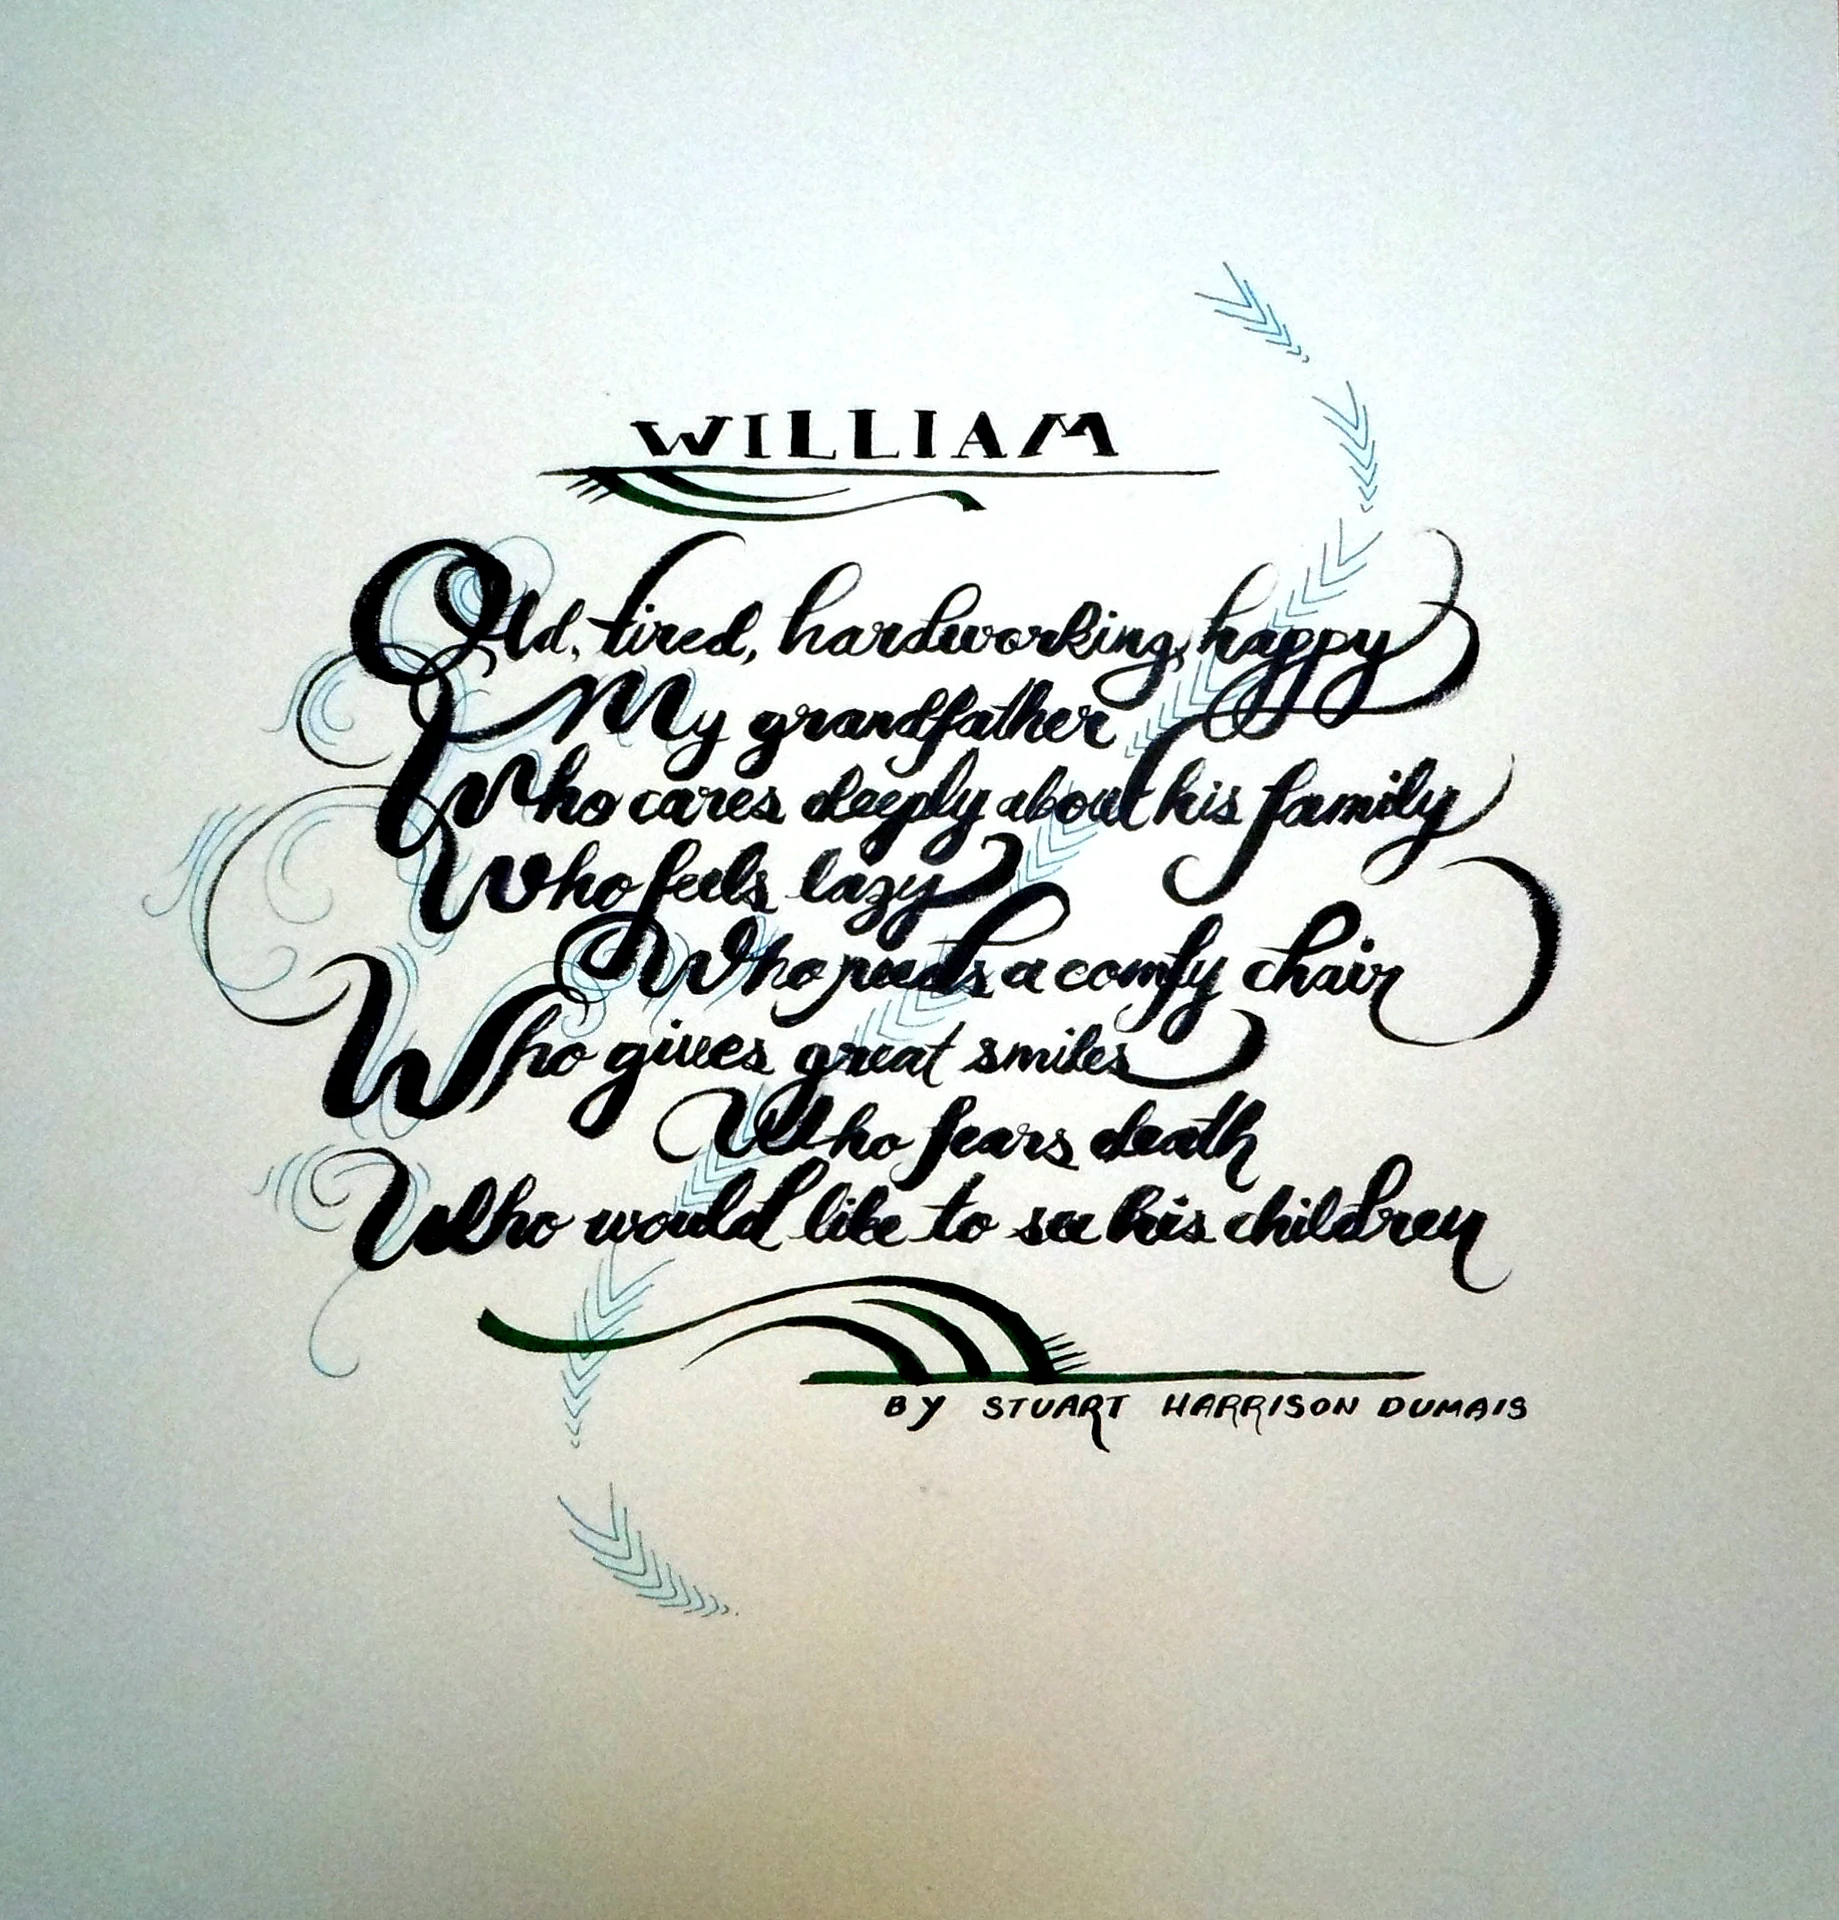 WILLIAM
Old, tired, hardworking, happy
My grandfather
Who cares deeply about his family
Who feels lazy
Who needs a comfy chair
Who gives great smiles
Who fears death
Who would like to see his children
BY STUART HARRISON DUMAIS